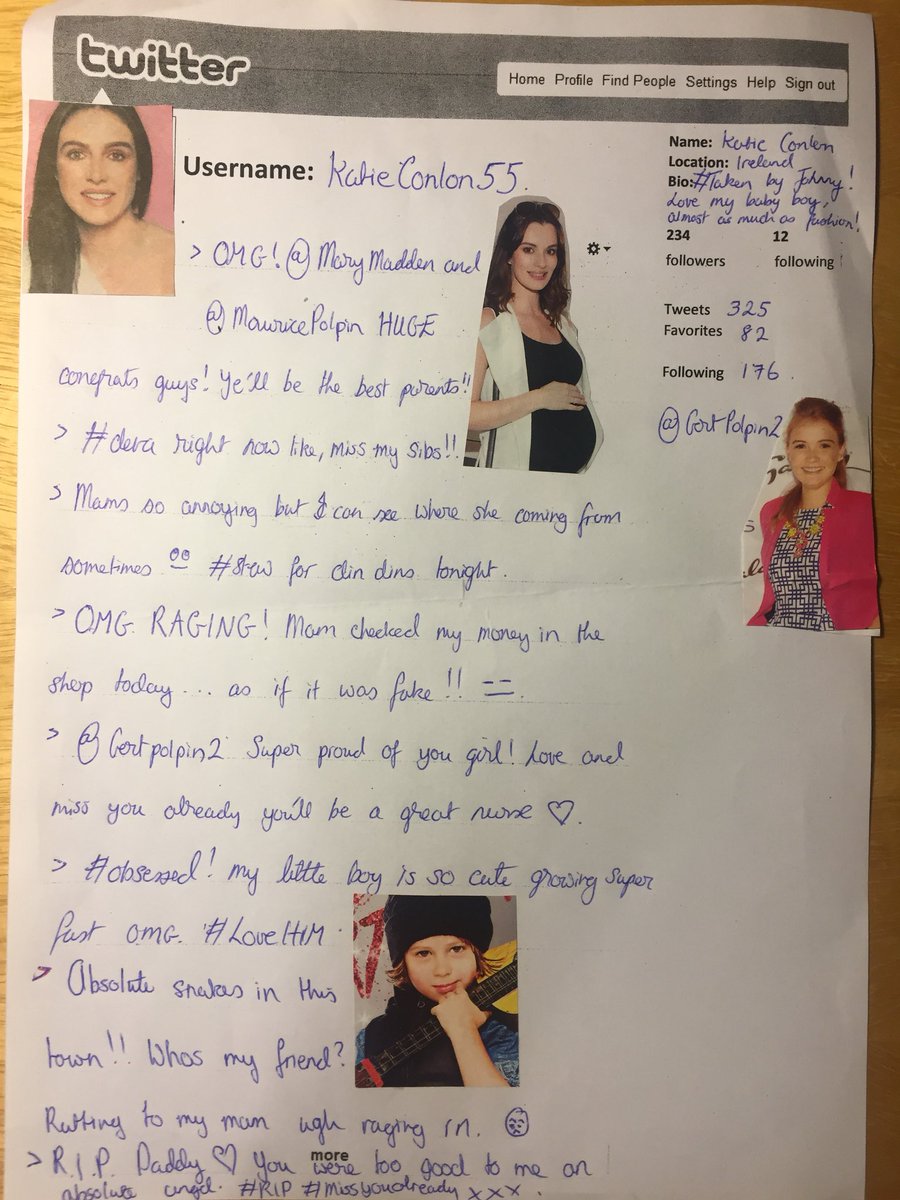 twitter
Home Profile Find People Settings Help Sign out
Username: KatieConlon55
Name: Katie Conlon
Location: Ireland
Bio: #Taken by Johnny!
Love my baby boy,
almost as much as fashion!
234 12
followers following
Tweets 325
Favorites 82
Following 176
@GertPolpin2
> OMG! @MaryMadden and
@MauricePolpin HUGE
congrats guys! Ye'll be the best parents!!
> #deva right now like, miss my sibs!!
> Mams so annoying but I can see where she coming from
sometimes #stew for din dins tonight.
> OMG RAGING! Mam checked my money in the
shop today... as if it was fake!!
> @Gertpolpin2 Super proud of you girl! Love and
miss you already you'll be a great nurse ♡.
> #obsessed! my little boy is so cute growing super
fast omg. #LoveHIM
> Absolute snakes in this
town!! Whos my friend?
Ratting to my mam ugh raging rn.
> R.I.P. Daddy ♡ you were more too good to me an
absolute angel. #RIP #missyoualready xxx.